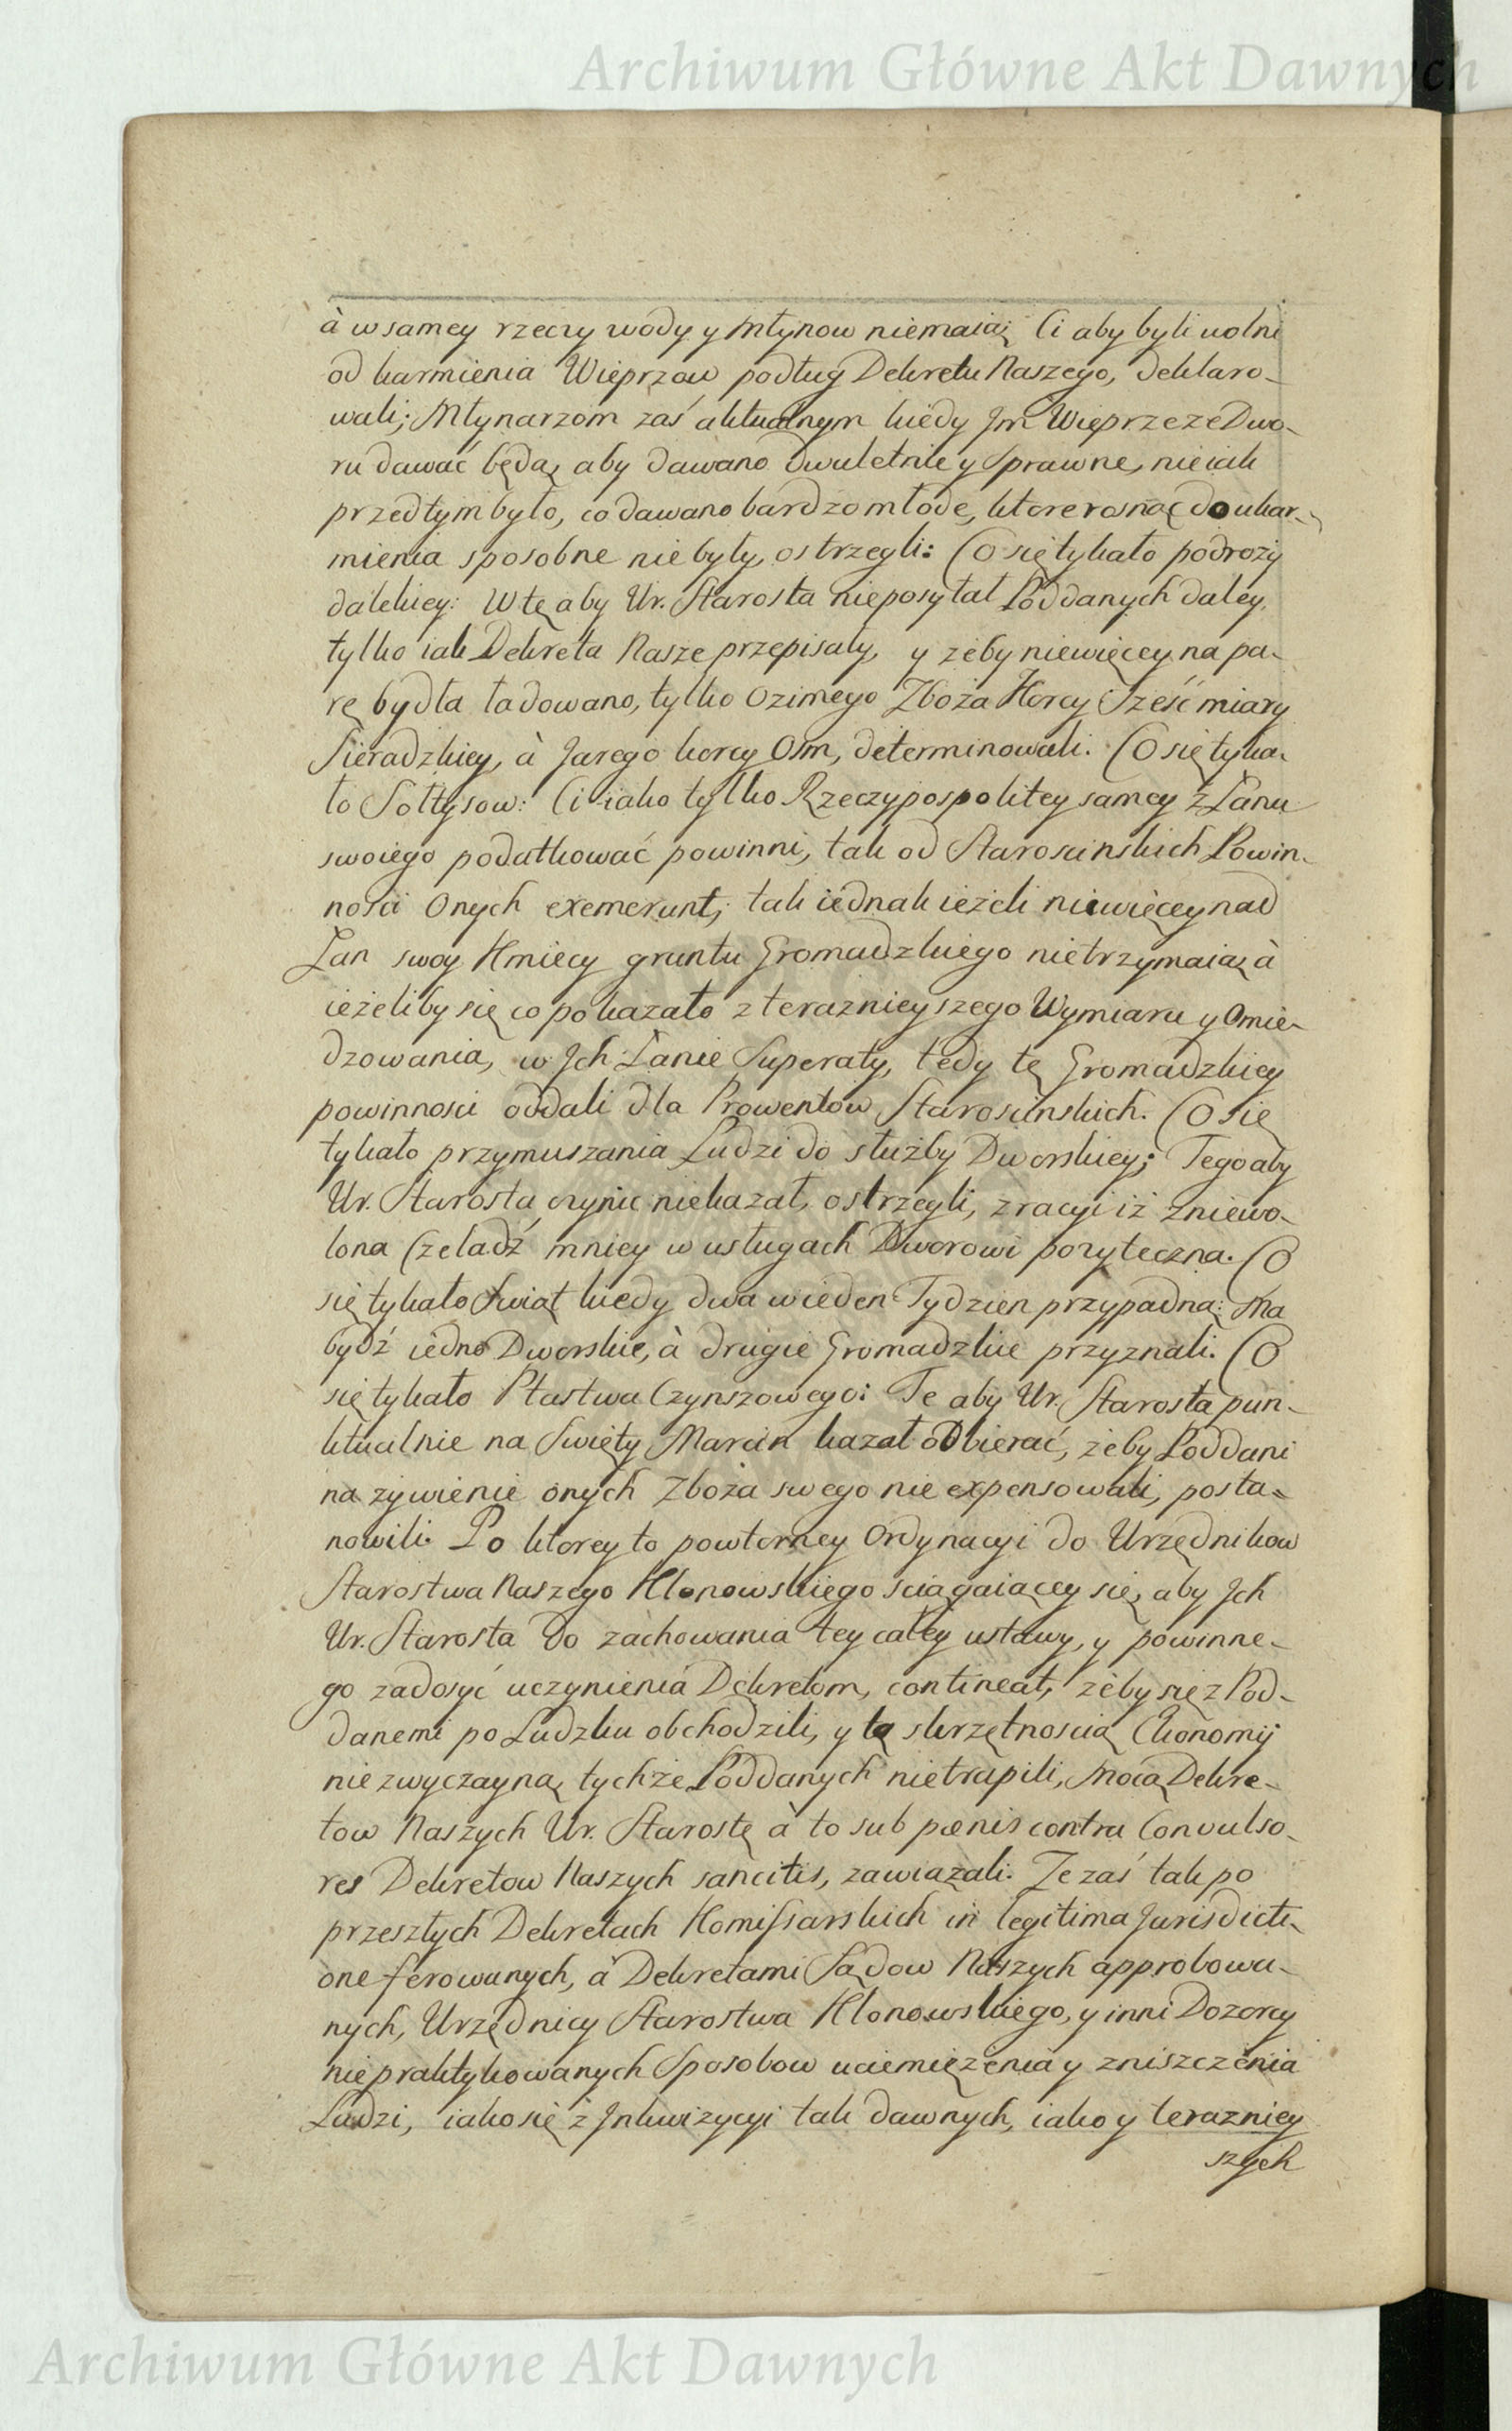 Archiwum Główne Akt Dawnych
à w samey rzeczy wody y Młynow niemaią; Ci aby byli wolni
od karmienia Wieprzow podług Dekretu Naszego, deklaro-
wali; Młynarzom zaś aktualnym kiedy Jm Wieprze ze Dwo-
ru dawać będą, aby dawano dwuletnie y Sprawne, nie iak
przedtym było, co dawano bardzo młode, ktore rosnąć do ukar-
mienia sposobne nie były, ostrzegli: Co się tykało podroży
dalekiey: W tę aby Ur. Starosta nieposyłał Poddanych daley,
tylko iak Dekreta Nasze przepisały, y żeby niewięcey na pa-
rę bydła ładowano, tylko Ozimego Zboża Korcy Sześć miary
Sieradzkiey, à Jarego korcy Osm, determinowali. Co się tyka-
ło Sołtysow: Ci iako tylko Rzeczypospolitey samey z Łanu
swoiego podatkować powinni, tak od Starościnskich Powin-
ności Onych exemerunt; tak iednak ieżeli niewięcey nad
Łan swoy Kmiecy gruntu Gromadzkiego nietrzymaią, à
ieżeliby się co pokazało z teraznieyszego Wymiaru y Omie-
dzowania, w Jch Łanie Superaty, tedy tę Gromadzkiey
powinności oddali dla Prowentow Starościnskich. Co się
tykało przymuszania Ludzi do służby Dworskiey; Tego aby
Ur. Starosta czynic niekazał, ostrzegli, z racyi iż zniewo-
lona Czeladź mniey w usługach Dworowi pożyteczna. Co
się tykało Swiąt kiedy dwa w ieden Tydzien przypadną: Ma
bydź iedno Dworskie, à drugie Gromadzkie przyznali. Co
się tykało Ptastwa Czynszowego: Te aby Ur. Starosta pun-
ktualnie na Swięty Marcin kazał odbierać, żeby Poddani
na żywienie onych Zboża swego nie expensowali, posta-
nowili. Po ktorey to powtorney Ordynacyi do Urzędnikow
Starostwa Naszego Klonowskiego ściągaiącey się, aby Jch
Ur. Starosta do zachowania tey całey ustawy, y powinne-
go zadosyć uczynienia Dekretom, contineat, żeby się z Pod-
danemi po Ludzku obchodzili, y tą skrzętnością Ekonomij
niezwyczayną, tychże Poddanych nietrapili, Mocą Dekre-
tow Naszych Ur. Starostę à to sub pœnis contra Convulso-
res Dekretow Naszych sancitis, zawiązali. Że zaś tak po
przeszłych Dekretach Komissarskich in legitima Jurisdicti-
one ferowanych, à Dekretami Sądow Naszych approbowa-
nych, Urzędnicy Starostwa Klonowskiego, y inni Dozorcy
niepraktykowanych Sposobow uciemiężenia y zniszczenia
Ludzi, iako się z Jnkwizycyi tak dawnych, iako y teraźniey
szych
Archiwum Główne Akt Dawnych